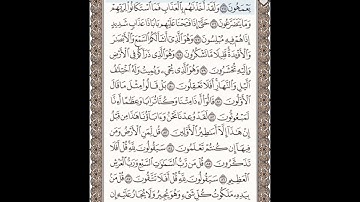 يَعْمَهُونَ ٧٥ وَلَقَدْ أَخَذْنَٰهُم بِٱلْعَذَابِ فَمَا ٱسْتَكَانُوا۟ لِرَبِّهِمْ
وَمَا يَتَضَرَّعُونَ ٧٦ حَتَّىٰٓ إِذَا فَتَحْنَا عَلَيْهِم بَابًا ذَا عَذَابٍ شَدِيدٍ
إِذَا هُمْ فِيهِ مُبْلِسُونَ ٧٧ وَهُوَ ٱلَّذِىٓ أَنشَأَ لَكُمُ ٱلسَّمْعَ وَٱلْأَبْصَٰرَ
وَٱلْأَفْـِٔدَةَ قَلِيلًا مَّا تَشْكُرُونَ ٧٨ وَهُوَ ٱلَّذِى ذَرَأَكُمْ فِى ٱلْأَرْضِ
وَإِلَيْهِ تُحْشَرُونَ ٧٩ وَهُوَ ٱلَّذِى يُحْىِۦ وَيُمِيتُ وَلَهُ ٱخْتِلَٰفُ
ٱلَّيْلِ وَٱلنَّهَارِ أَفَلَا تَعْقِلُونَ ٨٠ بَلْ قَالُوا۟ مِثْلَ مَا قَالَ
ٱلْأَوَّلُونَ ٨١ قَالُوٓا۟ أَءِذَا مِتْنَا وَكُنَّا تُرَابًا وَعِظَٰمًا أَءِنَّا
لَمَبْعُوثُونَ ٨٢ لَقَدْ وُعِدْنَا نَحْنُ وَءَابَآؤُنَا هَٰذَا مِن قَبْلُ
إِنْ هَٰذَآ إِلَّآ أَسَٰطِيرُ ٱلْأَوَّلِينَ ٨٣ قُل لِّمَنِ ٱلْأَرْضُ وَمَن
فِيهَآ إِن كُنتُمْ تَعْلَمُونَ ٨٤ سَيَقُولُونَ لِلَّهِ قُلْ أَفَلَا
تَذَكَّرُونَ ٨٥ قُلْ مَن رَّبُّ ٱلسَّمَٰوَٰتِ ٱلسَّبْعِ وَرَبُّ ٱلْعَرْشِ
ٱلْعَظِيمِ ٨٦ سَيَقُولُونَ لِلَّهِ قُلْ أَفَلَا تَتَّقُونَ ٨٧ قُلْ مَنۢ
بِيَدِهِۦ مَلَكُوتُ كُلِّ شَىْءٍ وَهُوَ يُجِيرُ وَلَا يُجَارُ عَلَيْهِ إِن